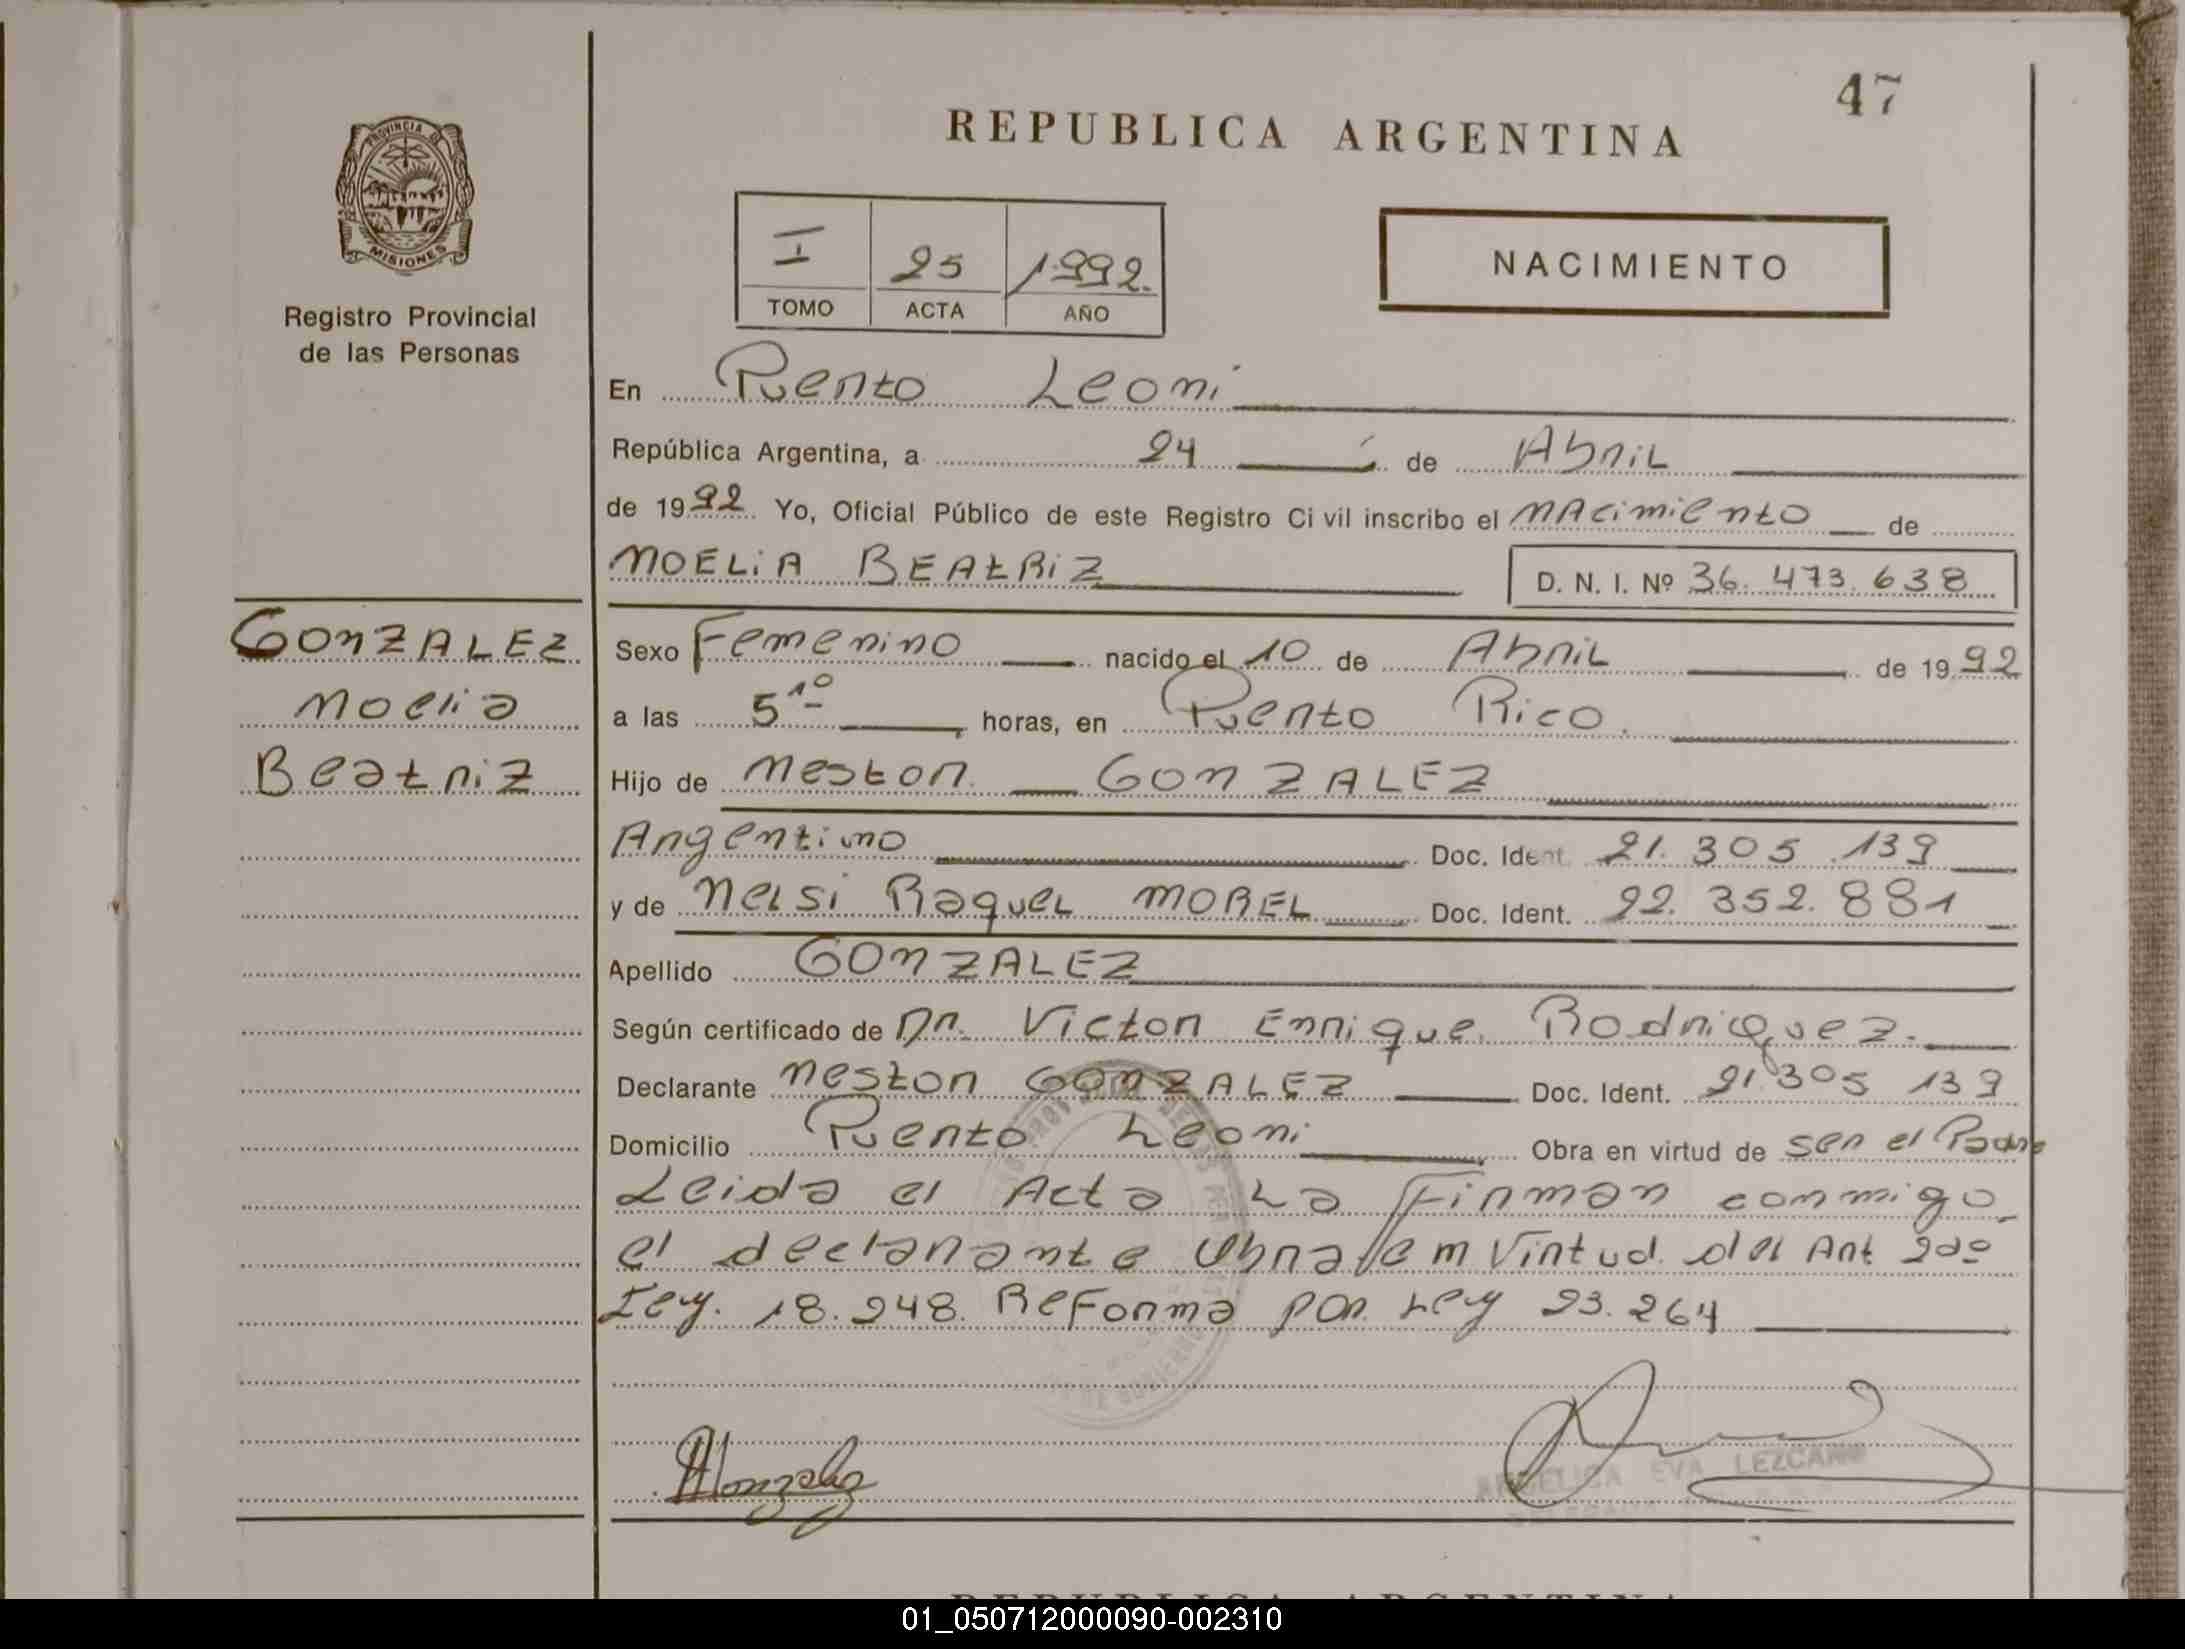 47
REPUBLICA ARGENTINA
PROVINCIA DE
MISIONES
Registro Provincial
de las Personas
I 25 1.992.
TOMO ACTA AÑO
NACIMIENTO
En Puerto Leoni
República Argentina, a 24 de Abril
de 1992 Yo, Oficial Público de este Registro Civil inscribo el nacimiento de
NOELIA BEATRIZ
D. N. I. Nº 36.473.638
GONZALEZ
Noelia
Beatriz
Sexo Femenino nacido el 10 de Abril de 1992
a las 5 10 horas, en Puerto Rico.
Hijo de Nestor GONZALEZ
Argentino Doc. Ident. 21.305.139
y de Nelsi Raquel MOREL Doc. Ident. 22.352.881
Apellido GONZALEZ
Según certificado de Dr. Victor Enrique Rodriquez.
Declarante Nestor GONZALEZ Doc. Ident. 21.305 139
Domicilio Puerto Leoni Obra en virtud de ser el Padre
Leida el Acta La Firman conmigo
el declarante Obra en Virtud del Art 2do
Ley. 18.248. Reforma por Ley 23.264
Gonzalez
ANGELICA EVA LEZCANO
REPUBLICA ARGENTINA
01_050712000090-002310